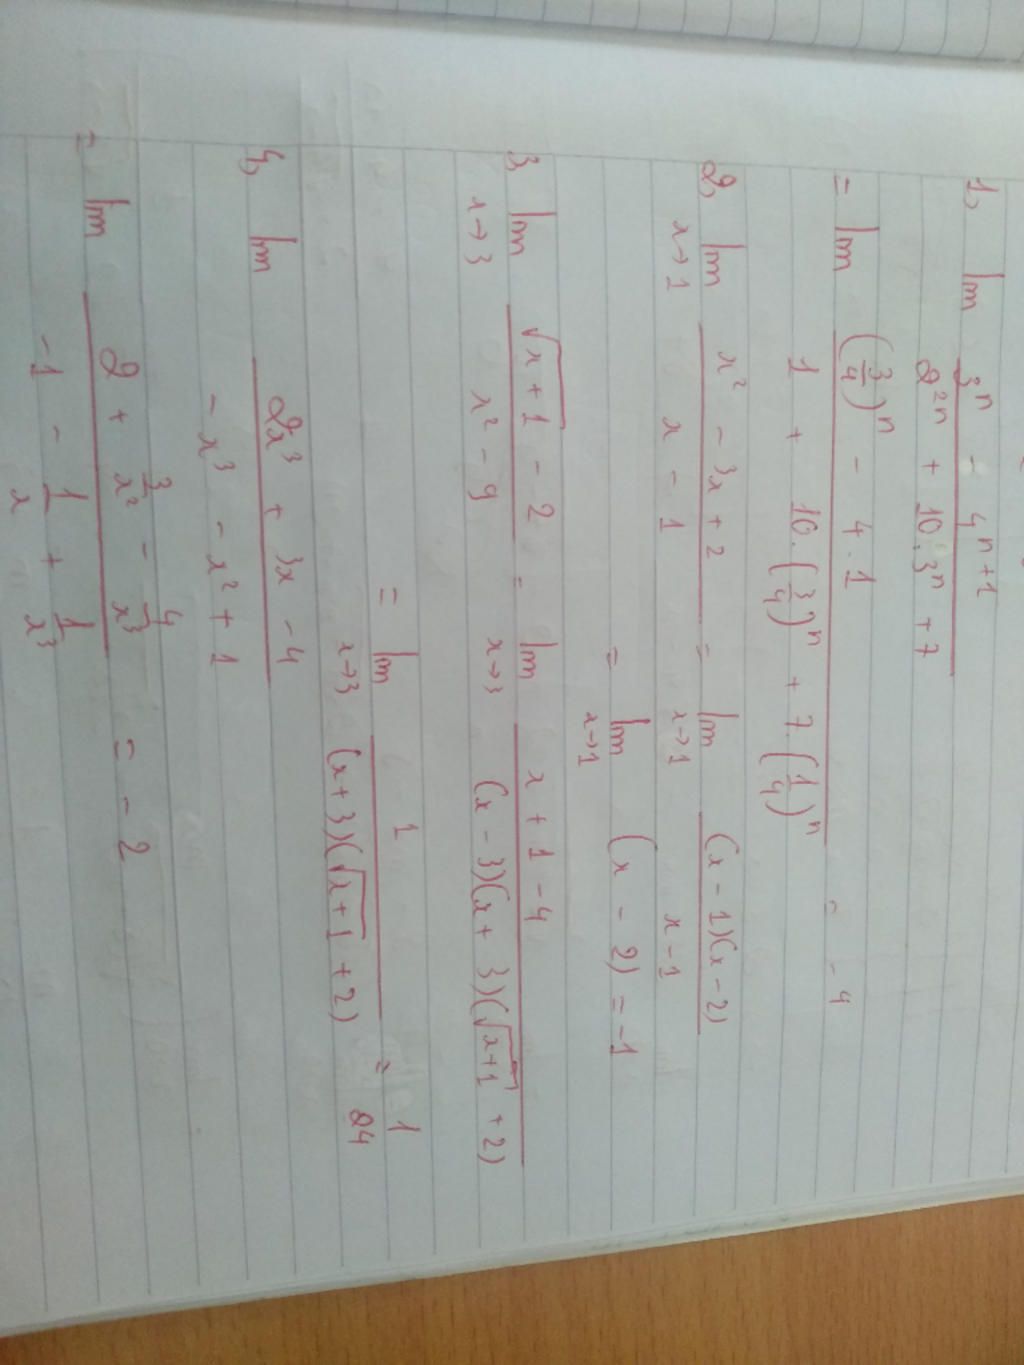 1, lim (3^n - 4^{n+1}) / (2^{2n} + 10.3^n + 7)
= lim ((3/4)^n - 4.1) / (1 + 10.(3/4)^n + 7.(1/4)^n) = -4
2, lim_{x→1} (x² - 3x + 2) / (x - 1) = lim_{x→1} ((x - 1)(x - 2)) / (x - 1)
= lim_{x→1} (x - 2) = -1
3, lim_{x→3} (√(x + 1) - 2) / (x² - 9) = lim_{x→3} (x + 1 - 4) / ((x - 3)(x + 3)(√(x+1) + 2))
= lim_{x→3} 1 / ((x + 3)(√(x+1) + 2)) = 1/24
4, lim (2x³ + 3x - 4) / (-x³ - x² + 1)
= lim (2 + 3/x² - 4/x³) / (-1 - 1/x + 1/x³) = -2